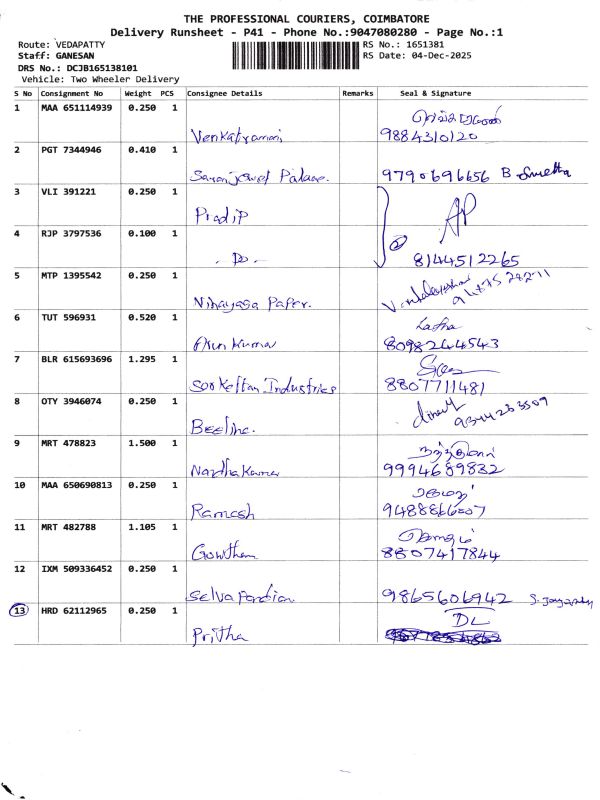 THE PROFESSIONAL COURIERS, COIMBATORE
Delivery Runsheet - P41 - Phone No.:9047080280 - Page No.:1
Route: VEDAPATTY RS No.: 1651381
Staff: GANESAN RS Date: 04-Dec-2025
DRS No.: DCJB165138101
Vehicle: Two Wheeler Delivery
S No Consignment No Weight PCS Consignee Details Remarks Seal & Signature
1 MAA 651114939 0.250 1
9884310120
2 PGT 7344946 0.410 1
9790696656 B
3 VLI 391221 0.250 1
Pradip
4 RJP 3797536 0.100 1
- Do - 8144512265
5 MTP 1395542 0.250 1
Paper.
6 TUT 596931 0.520 1
Arun Kumar 8098244543
7 BLR 615693696 1.295 1
Industries 8807711481
8 OTY 3946074 0.250 1
Beeline.
9 MRT 478823 1.500 1
9994689832
10 MAA 650690813 0.250 1
Ramesh
11 MRT 482788 1.105 1
Gowtham 8807417844
12 IXM 509336452 0.250 1
Selva Pandian 9865606942
13 HRD 62112965 0.250 1
DL
Pritha